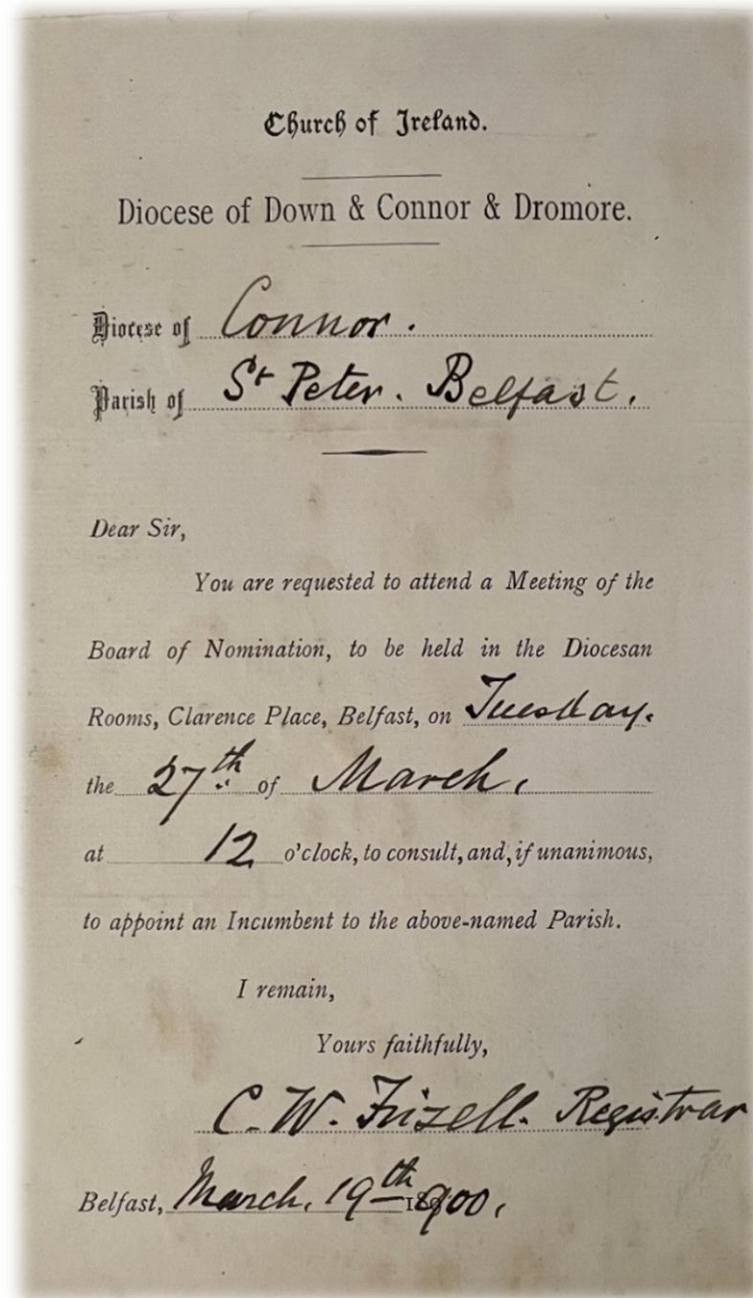 Church of Ireland.
Diocese of Down & Connor & Dromore.
Diocese of Connor.
Parish of St Peter. Belfast.
Dear Sir,
You are requested to attend a Meeting of the
Board of Nomination, to be held in the Diocesan
Rooms, Clarence Place, Belfast, on Tuesday.
the 27th of March.
at 12 o'clock, to consult, and, if unanimous,
to appoint an Incumbent to the above-named Parish.
I remain,
Yours faithfully,
C. W. Frizell. Registrar
Belfast, March. 19th 1900.